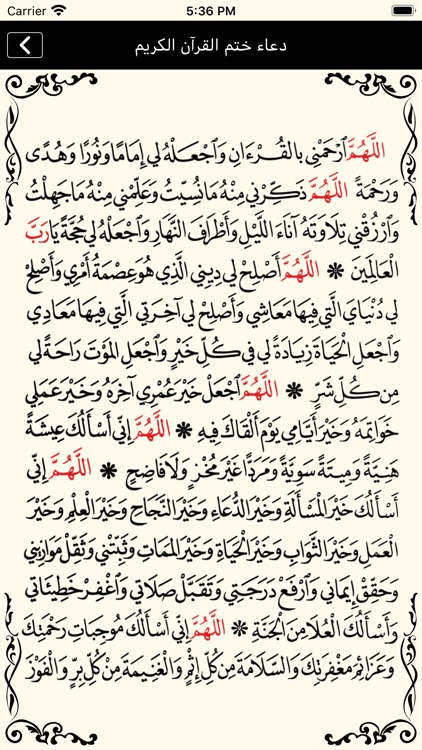 Carrier 5:36 PM
دعاء ختم القرآن الكريم
اللَّهُمَّ ٱرْحَمْنِي بالقُرْءَانِ وَٱجْعَلْهُ لِي إِمَامًا وَنُورًا وَهُدًى
وَرَحْمَةً اللَّهُمَّ ذَكِّرْنِي مِنْهُ مَانُسِّيتُ وَعَلِّمْنِي مِنْهُ مَاجَهِلْتُ
وَٱرْزُقْنِي تِلاَوَتَهُ آنَاءَ اللَّيْلِ وَأَطْرَافَ النَّهَارِ وَٱجْعَلْهُ لِي حُجَّةً يَارَبَّ
الْعَالَمِينَ ❋ اللَّهُمَّ أَصْلِحْ لِي دِينِي الَّذِي هُوَ عِصْمَةُ أَمْرِي وَأَصْلِحْ
لِي دُنْيَايَ الَّتِي فِيهَا مَعَاشِي وَأَصْلِحْ لِي آخِرَتِي الَّتِي فِيهَا مَعَادِي
وَٱجْعَلِ الْحَيَاةَ زِيَادَةً لِي فِي كُلِّ خَيْرٍ وَٱجْعَلِ الْمَوْتَ رَاحَةً لِي
مِن كُلِّ شَرٍّ ❋ اللَّهُمَّ ٱجْعَلْ خَيْرَ عُمْرِي آخِرَهُ وَخَيْرَ عَمَلِي
خَوَاتِمَهُ وَخَيْرَ أَيَّامِي يَوْمَ أَلْقَاكَ فِيهِ ❋ اللَّهُمَّ إِنِّي أَسْأَلُكَ عِيشَةً
هَنِيَّةً وَمِيتَةً سَوِيَّةً وَمَرَدًّا غَيْرَ مُخْزٍ وَلاَ فَاضِحٍ ❋ اللَّهُمَّ إِنِّي
أَسْأَلُكَ خَيْرَ الْمَسْأَلَةِ وَخَيْرَ الدُّعَاءِ وَخَيْرَ النَّجَاحِ وَخَيْرَ الْعِلْمِ وَخَيْرَ
الْعَمَلِ وَخَيْرَ الثَّوَابِ وَخَيْرَ الْحَيَاةِ وَخَيْرَ الْمَمَاتِ وَثَبِّتْنِي وَثَقِّلْ مَوَازِينِي
وَحَقِّقْ إِيمَانِي وَٱرْفَعْ دَرَجَتِي وَتَقَبَّلْ صَلاَتِي وَٱغْفِرْ خَطِيئَاتِي
وَأَسْأَلُكَ الْعُلاَ مِنَ الْجَنَّةِ ❋ اللَّهُمَّ إِنِّي أَسْأَلُكَ مُوجِبَاتِ رَحْمَتِكَ
وَعَزَائِمَ مَغْفِرَتِكَ وَالسَّلاَمَةَ مِن كُلِّ إِثْمٍ وَالْغَنِيمَةَ مِنْ كُلِّ بِرٍّ وَالْفَوْزَ